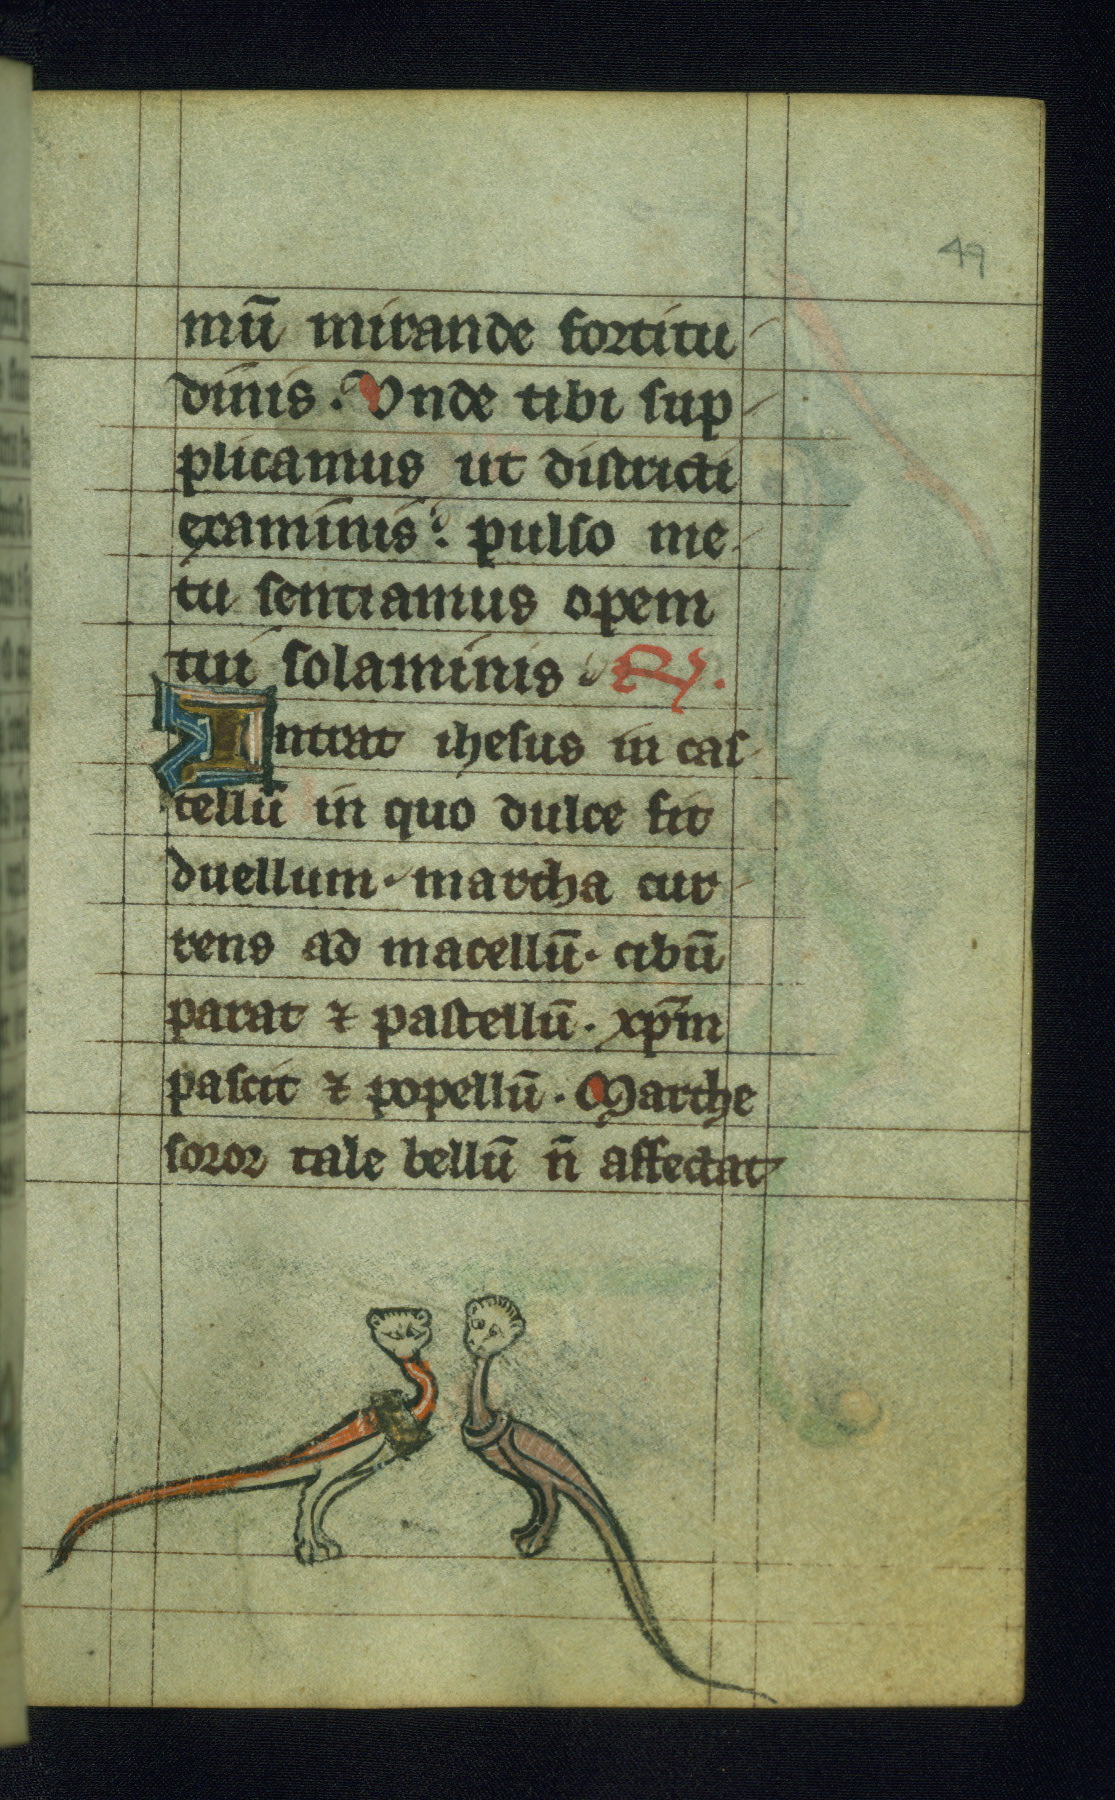 49
mū mirande fortitu
dinis. Vnde tibi sup
plicamus ut districti
examinis: pulso me
tu sentiamus opem
tui solaminis ℟.
Intrat ihesus in cas
tellū in quo dulce fit
duellum. martha cur
rens ad macellū. cibū
parat ⁊ pastellū. xp̄m
pascit ⁊ popellū. Marthe
soror tale bellū n̄ affectat